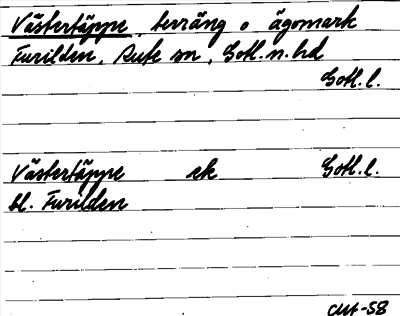 Västertäppe, terräng o ägomark
Furilden, Rute sn, Gotl. n. hd
Gotl. l.
Västertäppe ek Gotl. l.
bl. Furilden
-58